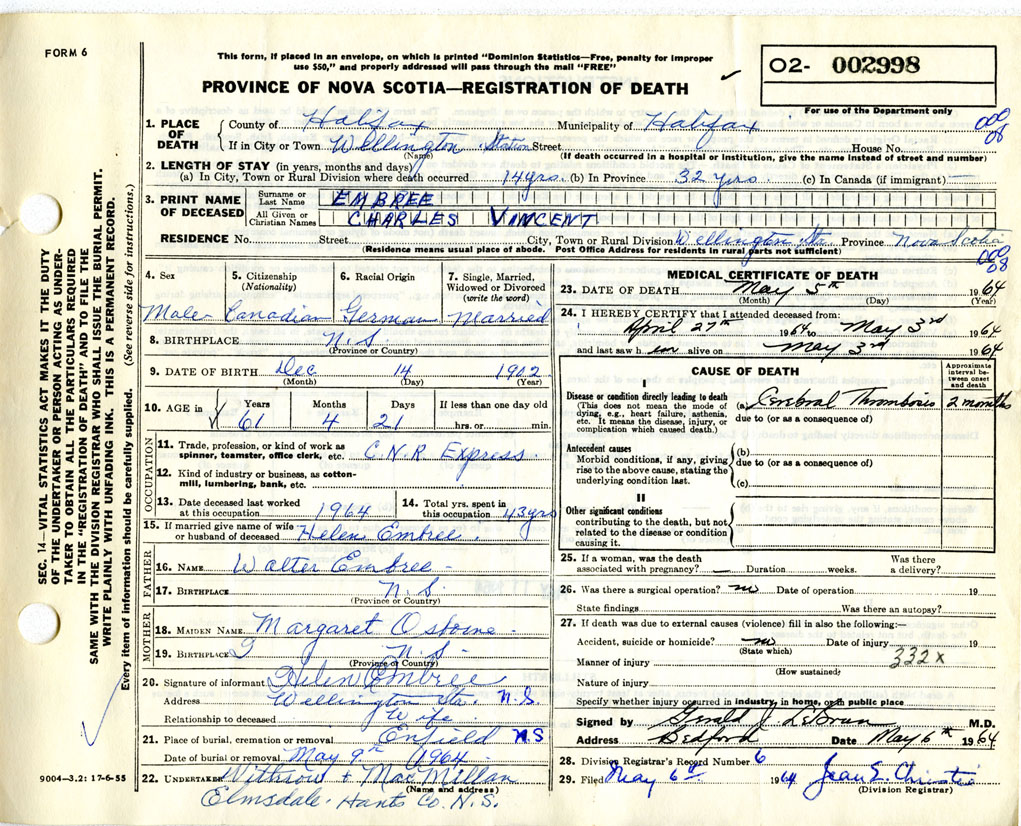 FORM 6
This form, if placed in an envelope, on which is printed "Dominion Statistics—Free, penalty for improper
use $50," and properly addressed will pass through the mail "FREE"
PROVINCE OF NOVA SCOTIA—REGISTRATION OF DEATH
02- 002998
For use of the Department only
000
08
1. PLACE OF DEATH
County of Halifax Municipality of Halifax
If in City or Town Wellington Station Street House No.
(Name) (If death occurred in a hospital or institution, give the name instead of street and number)
2. LENGTH OF STAY (in years, months and days)
(a) In City, Town or Rural Division where death occurred 14 yrs. (b) In Province 32 yrs. (c) In Canada (if immigrant) —
3. PRINT NAME OF DECEASED
Surname or Last Name EMBREE
All Given or Christian Names CHARLES VINCENT
RESIDENCE No. Street City, Town or Rural Division Wellington Sta. Province Nova Scotia
(Residence means usual place of abode. Post Office Address for residents in rural parts not sufficient)
000
08
4. Sex 5. Citizenship (Nationality) 6. Racial Origin 7. Single, Married, Widowed or Divorced (write the word)
Male Canadian German Married
8. BIRTHPLACE N.S.
(Province or Country)
9. DATE OF BIRTH Dec 14 1902
(Month) (Day) (Year)
10. AGE in Years Months Days If less than one day old
61 4 21 hrs. or min.
OCCUPATION
11. Trade, profession, or kind of work as spinner, teamster, office clerk, etc. C.N.R Express
12. Kind of industry or business, as cotton-mill, lumbering, bank, etc.
13. Date deceased last worked at this occupation 1964 14. Total yrs. spent in this occupation 43 yrs
15. If married give name of wife or husband of deceased Helen Embree
FATHER
16. NAME Walter Embree
17. BIRTHPLACE N.S.
(Province or Country)
MOTHER
18. MAIDEN NAME Margaret Osborne
19. BIRTHPLACE N.S.
(Province or Country)
20. Signature of informant Helen Embree
Address Wellington Sta. N.S.
Relationship to deceased Wife
21. Place of burial, cremation or removal Enfield N.S
Date of burial or removal May 9th 1964
22. UNDERTAKER Withrow & MacMillan
(Name and address)
Elmsdale. Hants Co. N.S.
9004-3.2: 17-6-55
MEDICAL CERTIFICATE OF DEATH
23. DATE OF DEATH May 5th 1964
(Month) (Day) (Year)
24. I HEREBY CERTIFY that I attended deceased from:
April 27th 1964 to May 3rd 1964
and last saw him alive on May 3rd 1964
CAUSE OF DEATH
Approximate interval between onset and death
I
Disease or condition directly leading to death
(This does not mean the mode of dying, e.g., heart failure, asthenia, etc. It means the disease, injury, or complication which caused death.)
(a) Cerebral Thrombosis 2 months
due to (or as a consequence of)
Antecedent causes
Morbid conditions, if any, giving rise to the above cause, stating the underlying condition last.
(b)
due to (or as a consequence of)
(c)
II
Other significant conditions
contributing to the death, but not related to the disease or condition causing it.
25. If a woman, was the death associated with pregnancy? — Duration weeks. Was there a delivery?
26. Was there a surgical operation? no Date of operation 19
State findings Was there an autopsy?
27. If death was due to external causes (violence) fill in also the following:—
Accident, suicide or homicide? no Date of injury 19
(State which)
332x
Manner of injury
(How sustained)
Nature of injury
Specify whether injury occurred in industry, in home, or in public place
Signed by Gerald J. LeBrun M.D.
Address Bedford Date May 6th 1964
28. Division Registrar's Record Number 6
29. Filed May 6th 1964 Jean E. Christie
(Division Registrar)
SEC. 14—VITAL STATISTICS ACT MAKES IT THE DUTY
OF THE UNDERTAKER OR PERSON ACTING AS UNDER-
TAKER TO OBTAIN ALL THE PARTICULARS REQUIRED
IN THE "REGISTRATION OF DEATH" AND TO FILE THE
SAME WITH THE DIVISION REGISTRAR WHO SHALL ISSUE THE BURIAL PERMIT.
WRITE PLAINLY WITH UNFADING INK. THIS IS A PERMANENT RECORD.
Every item of information should be carefully supplied. (See reverse side for instructions.)